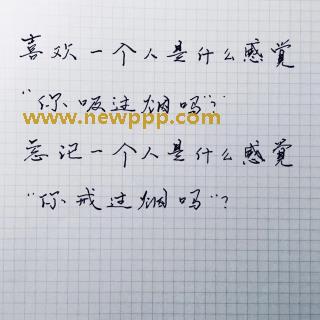 喜欢一个人是什么感觉
"你吸过烟吗?"
www.newppp.com
忘记一个人是什么感觉
"你戒过烟吗"?